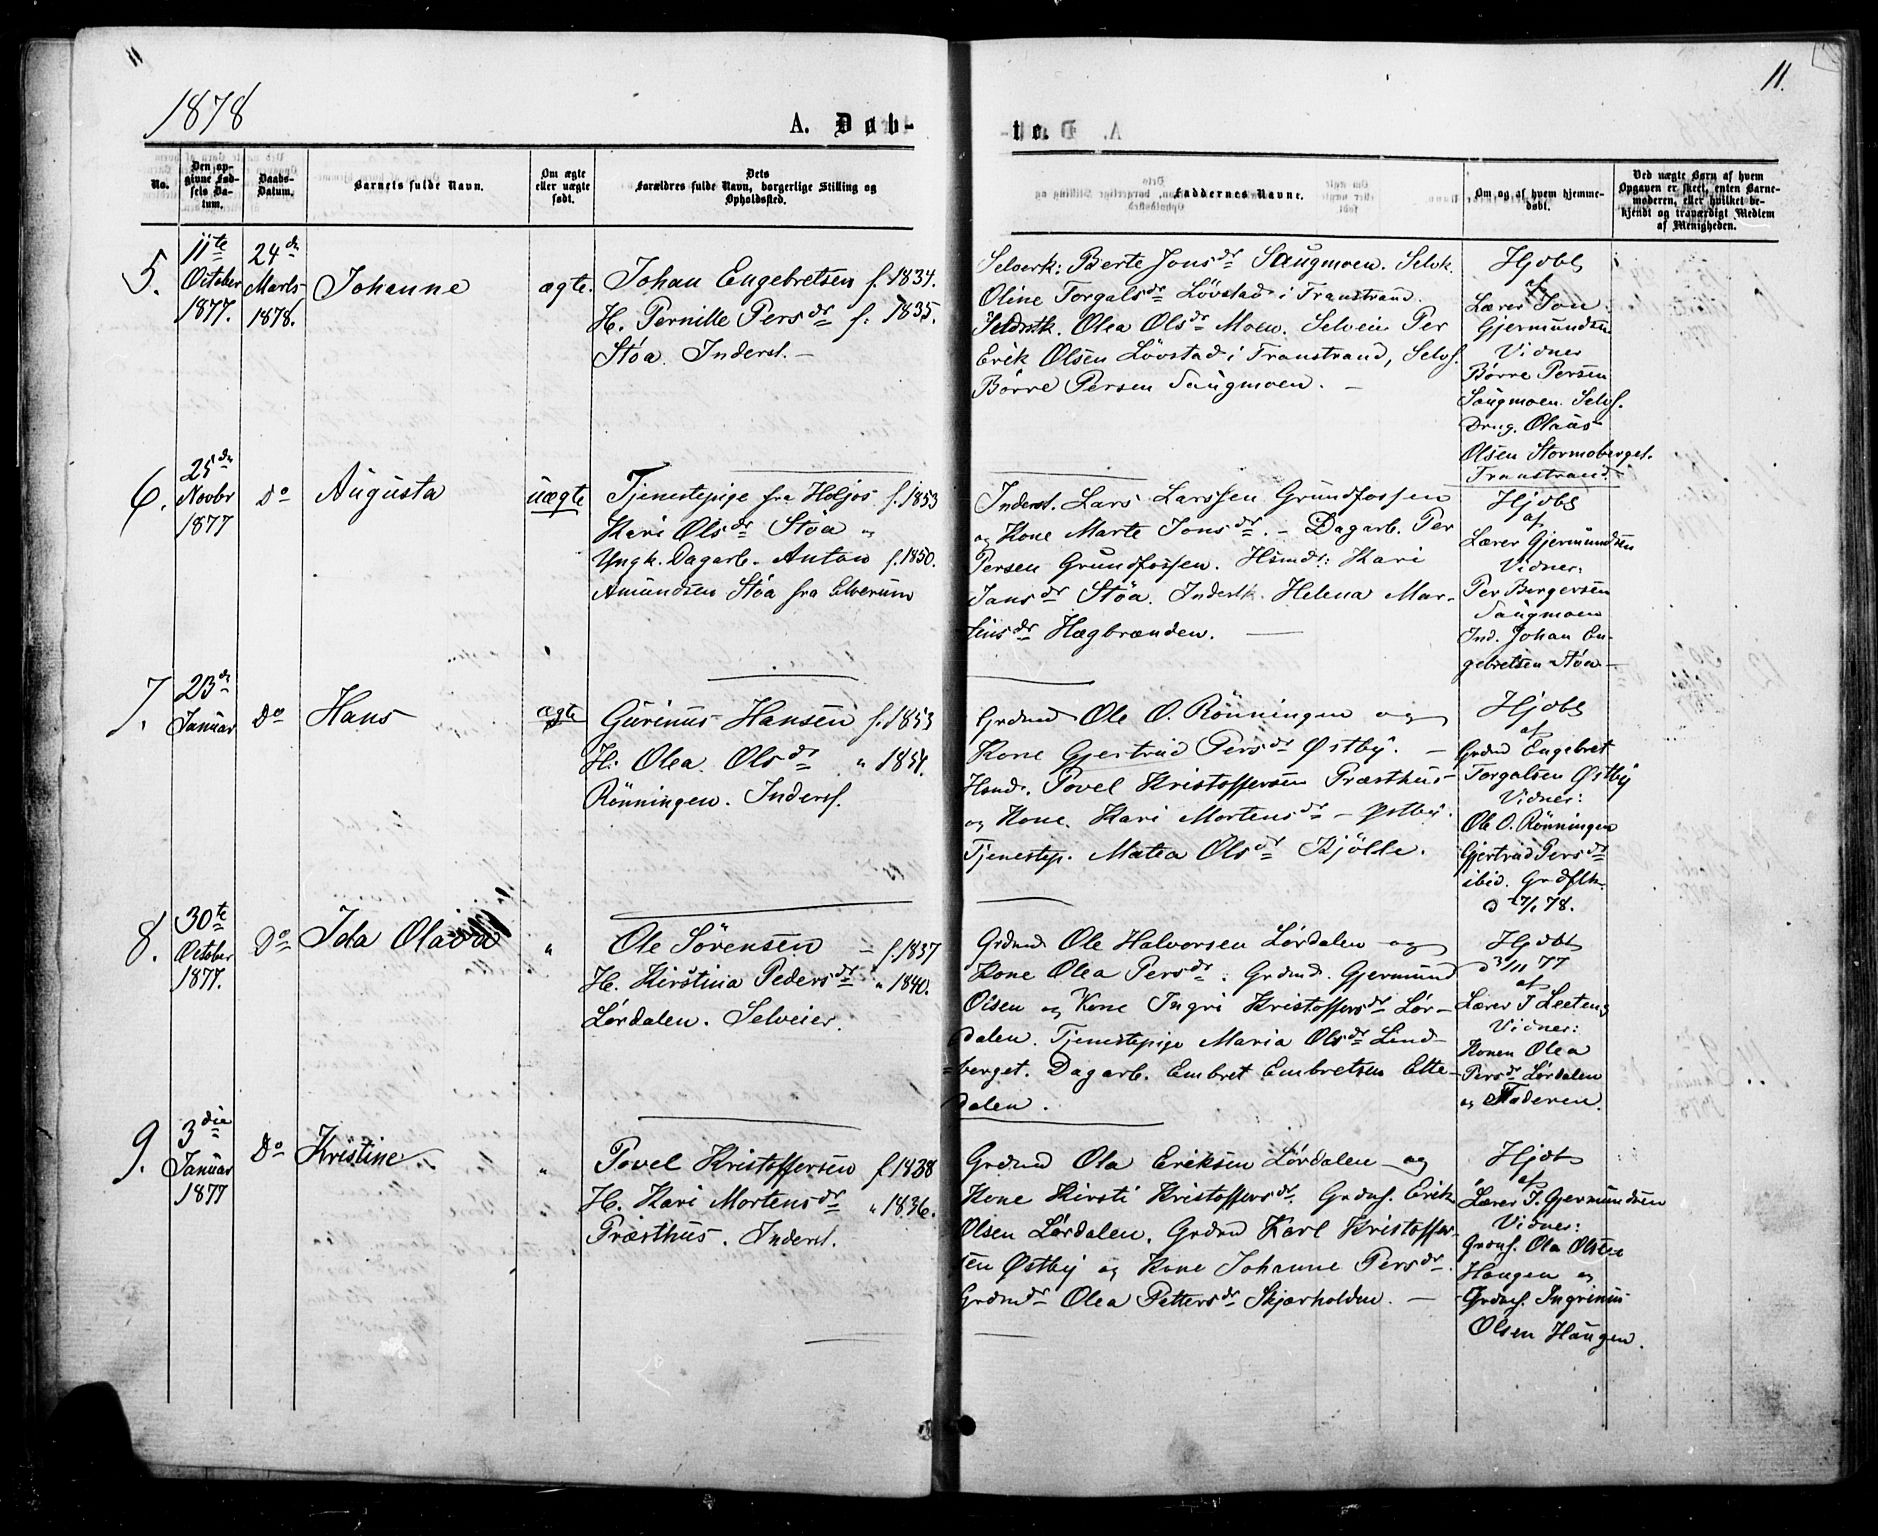 11
11.
1878
A. Døb-
te.
No.
Den op-
givne Fød-
sels Da-
tum.
Daabs-
Datum.
Barnets fulde Navn.
Om ægte
eller uægte
født.
Dets
Forældres fulde Navn, borgerlige Stilling og
Opholdssted.
Faddernes Navne.
Om og af hvem hjemme-
døbt.
Ved uægte Børn af hvem
Opgaven er skeet, enten Barne-
moderen, eller hvilket be-
kjendt og troværdigt Medlem
af Menigheden.
5.
11te
October
1877.
24de
Marts
1878.
Johanne
ægte.
Johan Engebretsen f. 1834.
H. Pernille Persdr f. 1835.
Støa. Inderst. –
Selverk: Berte Jonsdr Saugmoen. Selvk.
Oline Torgalsdr Lövstad i Transtrand.
Olea Olsdr Moen. Selveier Per
Erik Olsen Lövstad i Transtrand, Selvf.
Börre Persen Saugmoen. –
Hjdbt
af
Lærer Jon
Gjermundsen
Vidner
Börre Persen
Saugmoen. Selvf.
Olaus
Olsen Stormoberget.
Transtrand
6.
25de
Novbr
1877
Do
Augusta
uægte
Tjenestepige fra Höljos f. 1853
Kari Olsdr Støa og
Ungk. Dagarb. Anton f. 1850.
Amundsen Støa fra Elverum
Inderst. Lars Larssen Grundfossen
og Kone Marte Jonsdr. – Dagarb. Per
Persen Grundfossen. Hsmdr: Kari
Jansdr Støa. Inderstk. Helena Mar-
tinsdr Hægbrænden. –
Hjdbt
af
Lærer Gjermundsen
Vidner:
Per Bergersen
Saugmoen
Ind. Johan En-
gebretsen Støa –
7.
23de
Januar
Do
Hans
ægte
Gurinus Hansen f. 1853
H. Olea Olsdr " 1854.
Rönningen. Inderst.
Grdmd Ole O. Rönningen og
Kone Gjertrud Persdr Østby. –
Hsmdr. Povel Kristoffersen Præsthus
og Kone Kari Mortensdr – Østby.
Tjenestep. Matea Olsdr Kjölle.
Hjdbt
af
Grdmd Engebret
Torgalsen Østby
Vidner:
Ole O. Rönningen
Gjertrud Persdr
ibid. Grdflk.
d 27/1 78.
8.
30te
October
1877.
Do
Ida Olava
"
Ole Sörensen – f. 1837
H. Kirstina Pedersdr " 1840.
Lørdalen. Selveier.
Grdmd Ole Halvorsen Lørdalen og
Kone Olea Persdr. Grdmd. Gjermund
Olsen og Kone Ingri Kristoffersdr Lør-
dalen. Tjenestepige Maria Olsdr Lind-
berget. Dagarb. Embret Embretsen Ette-
dalen.
Hjdbt
d 3/11 77
af
Lærer J Leeteng
Vidner:
Konen Olea
Persdr Lørdalen
og Faderen.
9.
3die
Januar
1877
Do
Kristine
"
Povel Kristoffersen f. 1838
H. Kari Mortensdr " 1836.
Præsthus. Inderst.
Grdmd Ola Eriksen Lørdalen og
Kone Kirsti Kristoffersdr. Grdmf. Erik
Olsen Lørdalen. Grdmd Karl Kristoffer-
sen Østby og Kone Johanne Persdr.
Grdmdr Olea Pettersdr Skjærholden. –
Hjdbt
af
Lærer J. Gjermundsen
Vidner:
Grdmf. Ola Olsen
Haugen og
Grdmf. Ingrinus
Olsen Haugen.